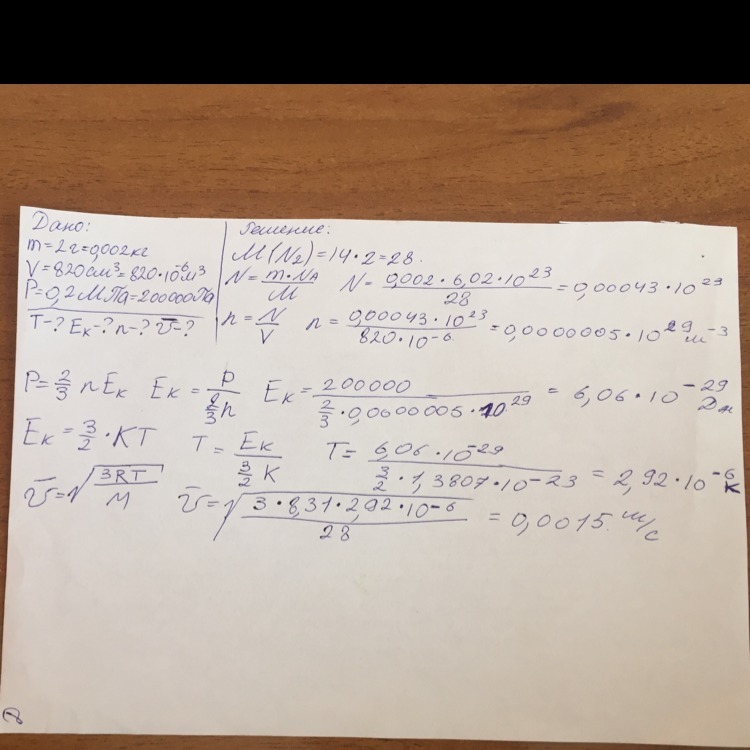 Дано:
m=2г=0,002кг
V=820см³=820·10⁻⁶м³
P=0,2МПа=200000Па
T-? Eк-? n-? v̅-?
Решение:
M(N₂)=14·2=28.
N=m·Nᴀ/M N=0,002·6,02·10²³/28=0,00043·10²³
n=N/V n=0,00043·10²³/820·10⁻⁶=0,0000005·10²⁹м⁻³
P=2/3 nEк Eк=P/(2/3 n) Eк=200000/(2/3·0,0000005·10²⁹)=6,06·10⁻²⁹Дж
Eк=3/2·KT T=Eк/(3/2 K) T=6,06·10⁻²⁹/(3/2·1,3807·10⁻²³)=2,92·10⁻⁶K
v̅=√(3RT/M) v̅=√(3·8,31·2,92·10⁻⁶/28)=0,0015 м/с